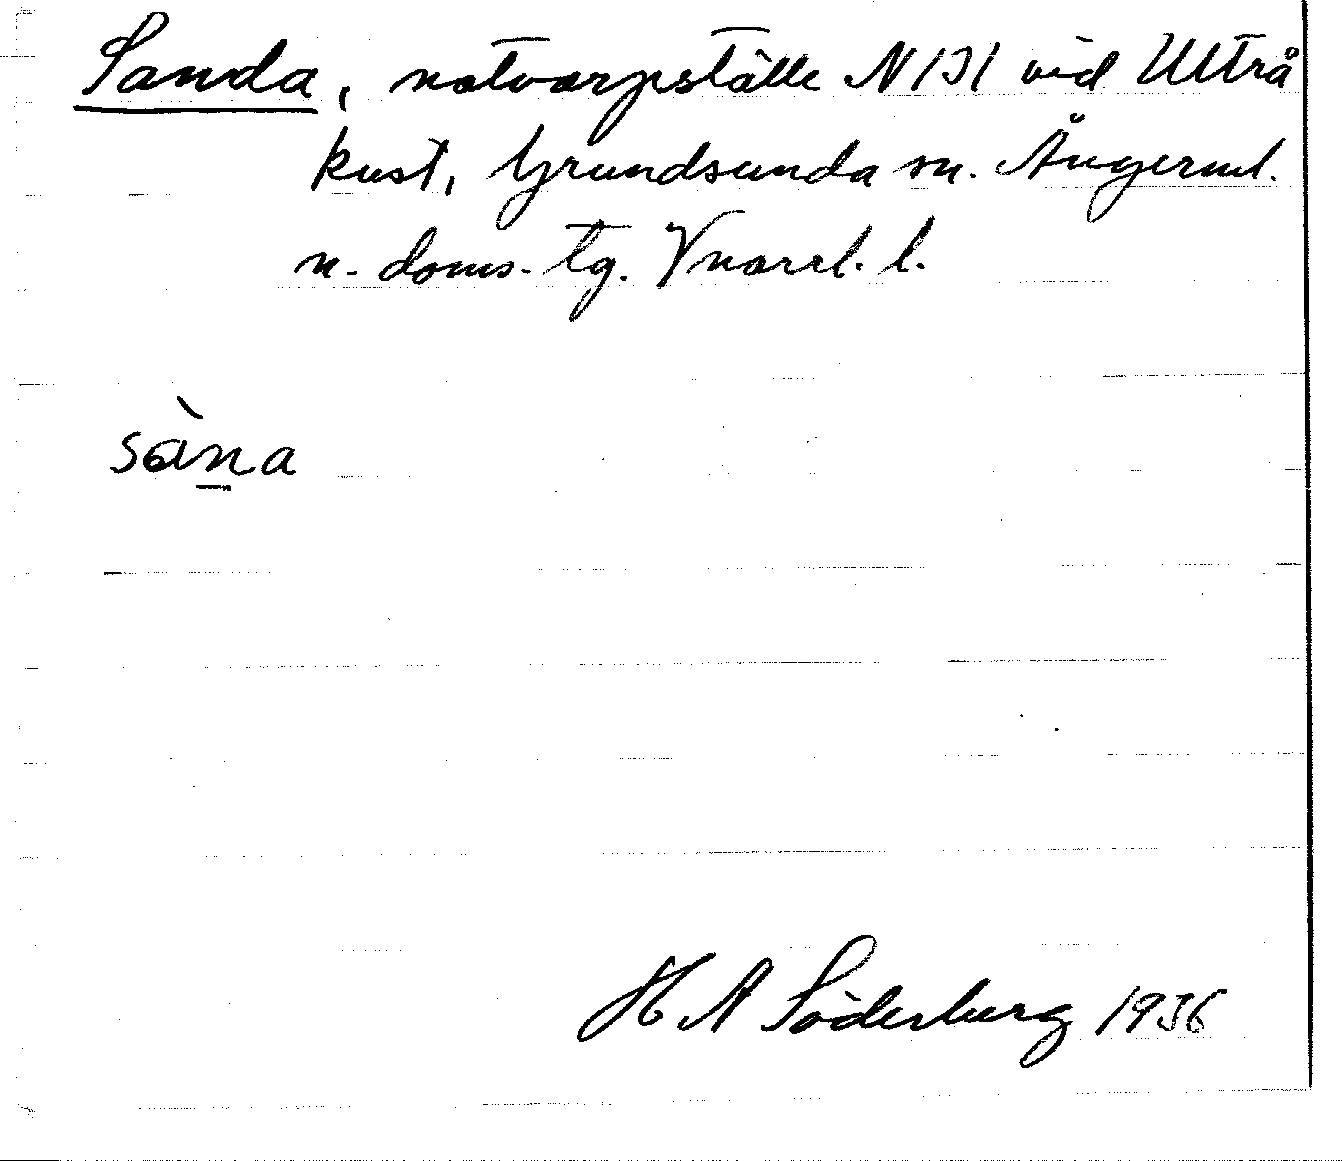 Sanda, notvarpställe N 131 vid Utterå
kust, Grundsunda sn. Ångerml.
n. doms. tg. Vnorrl. l.
sàna
H A Söderberg 1936